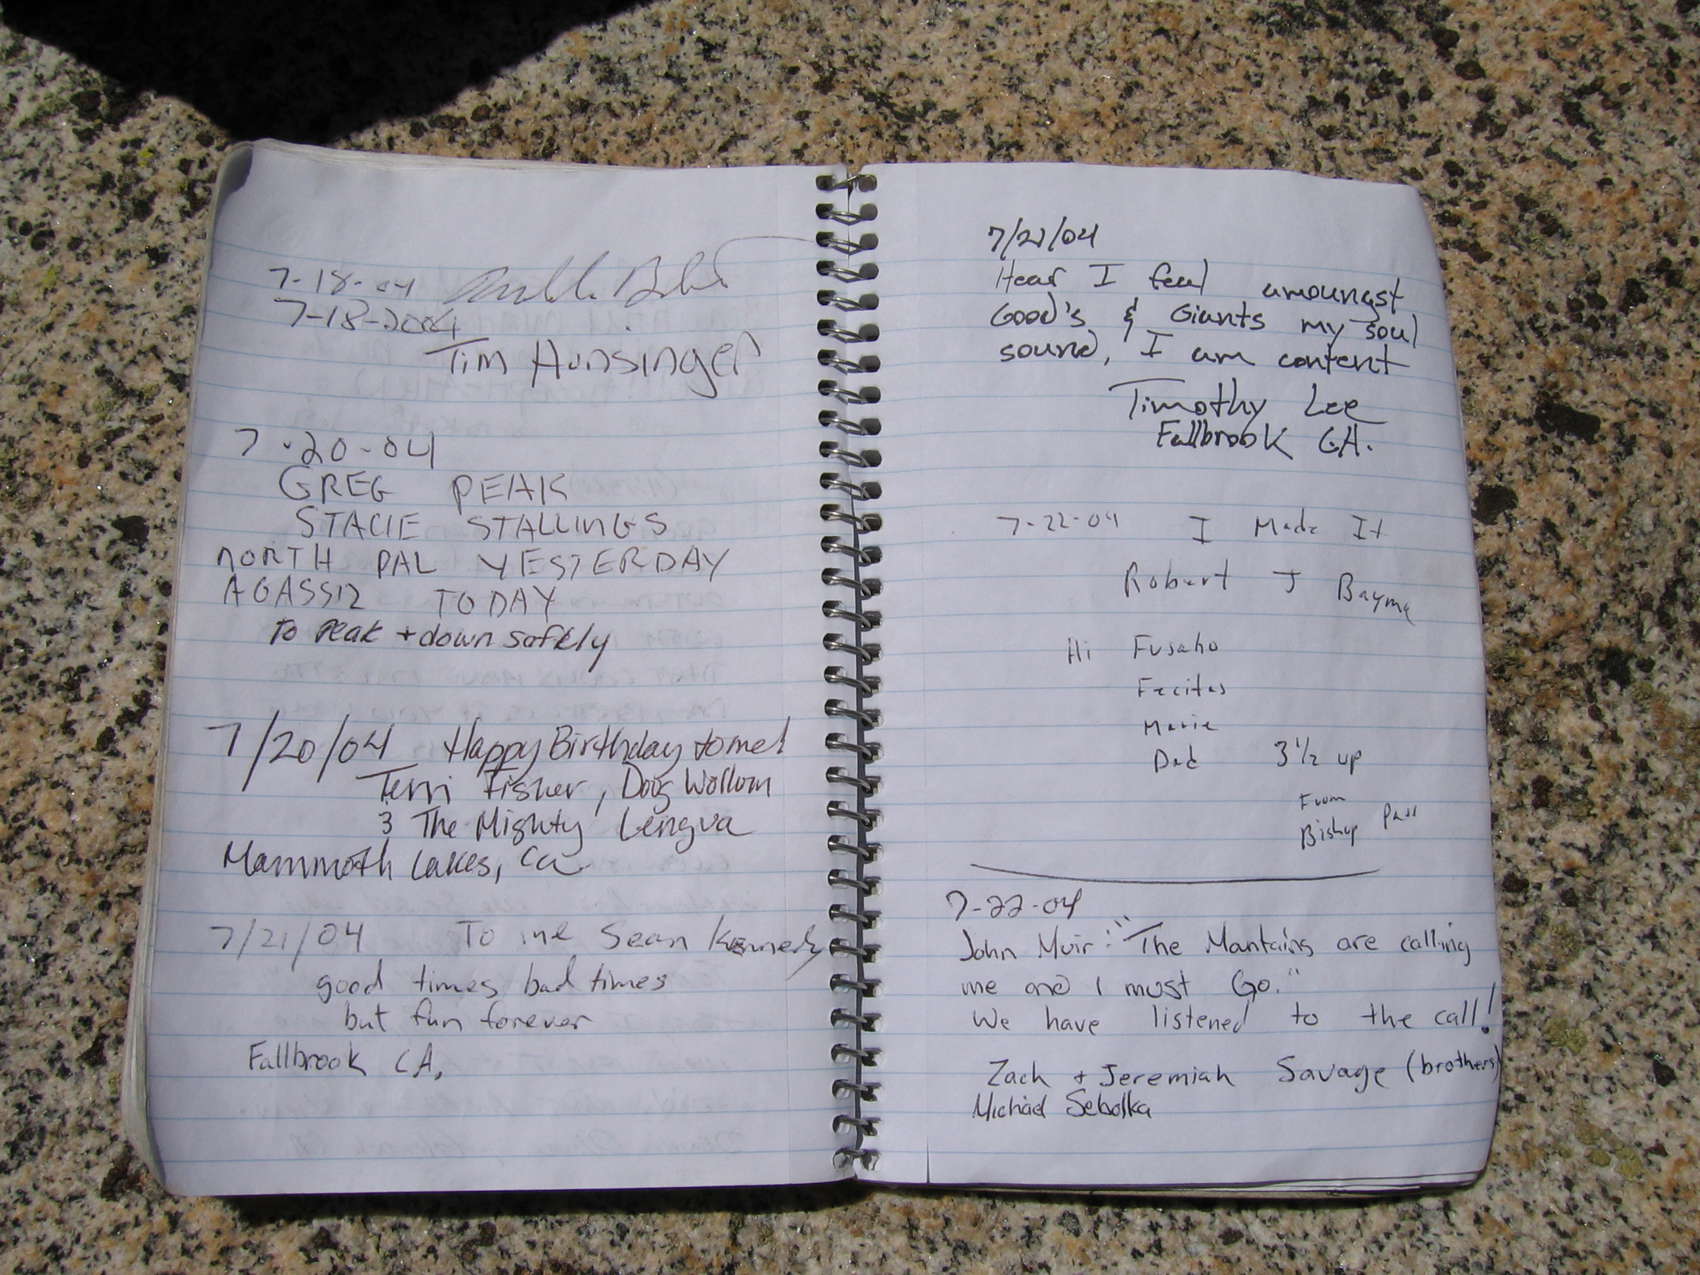 7-18-04
7-18-2004
Tim Hunsinger
7-20-04
GREG PEAK
STACIE STALLINGS
NORTH PAL YESTERDAY
AGASSIZ TODAY
to Peak + down safely
7/20/04 Happy Birthday to me!
Terri Fisher, Doug Wollum
3 The Mighty Lengua
Mammoth Lakes, Ca
7/21/04 To me Sean Kennedy
good times bad times
but fun forever
Fallbrook CA,
7/21/04
Hear I feel amoungst
Good's & Giants my soul
sound, I am content
Timothy Lee
Fallbrook CA.
7-22-04 I Made It
Robert J Bayma
Hi Fusaho
Marie
Dad 3 1/2 up
From
Bishup Pass
7-22-04
John Muir: "The Mantains are calling
me and I must Go."
We have listened to the call!
Zach + Jeremiah Savage (brothers)
Michael Sebolka